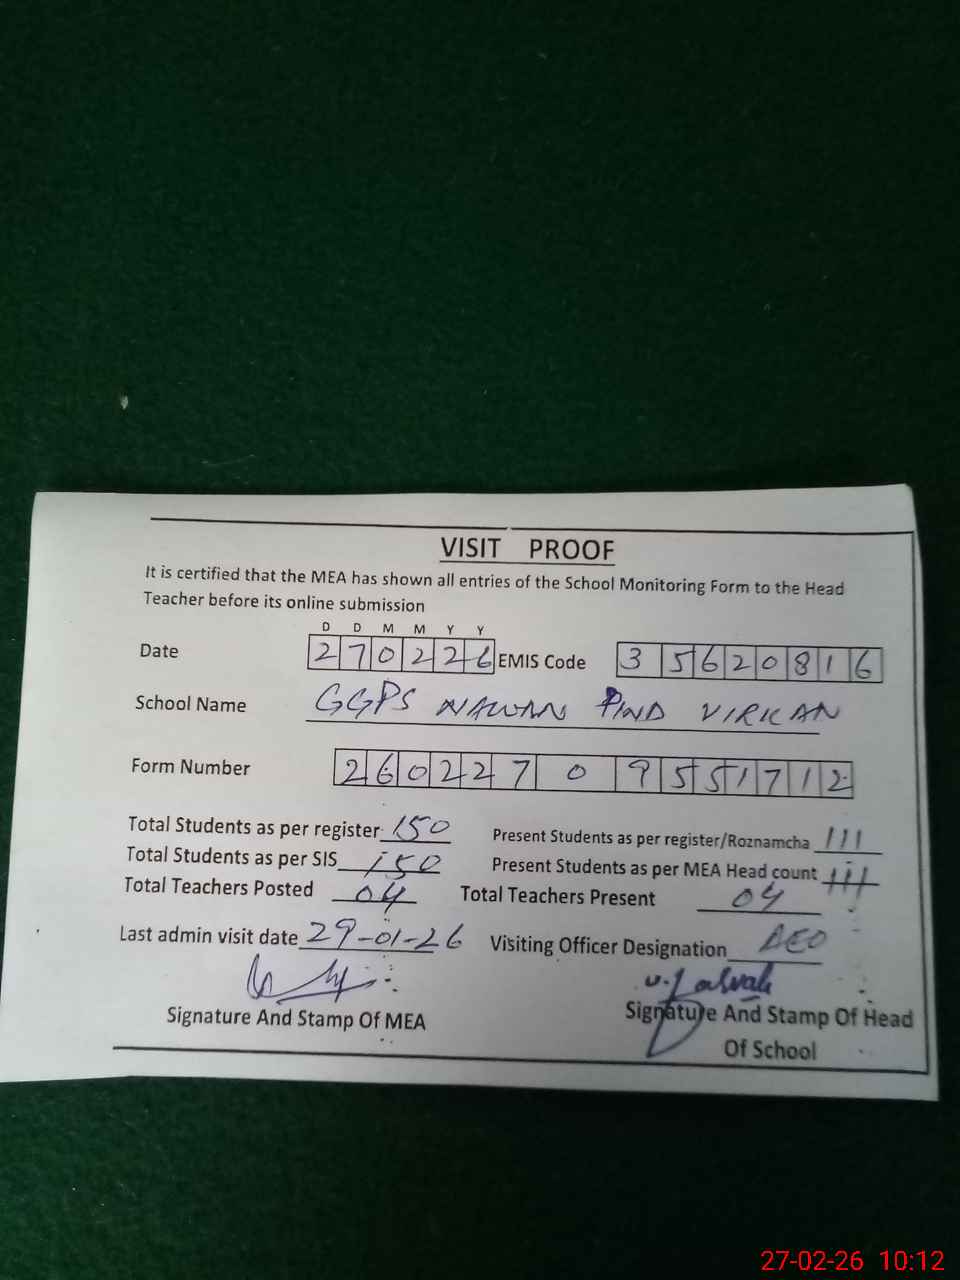 VISIT PROOF
It is certified that the MEA has shown all entries of the School Monitoring Form to the Head
Teacher before its online submission
D D M M Y Y
Date 270226 EMIS Code 35620816
School Name GGPS NAWAN PIND VIRKAN
Form Number 26022709551712
Total Students as per register 150 Present Students as per register/Roznamcha 111
Total Students as per SIS 150 Present Students as per MEA Head count 111
Total Teachers Posted 04 Total Teachers Present 04
Last admin visit date 29-01-26 Visiting Officer Designation AEO
Signature And Stamp Of MEA Signature And Stamp Of Head
Of School
27-02-26 10:12